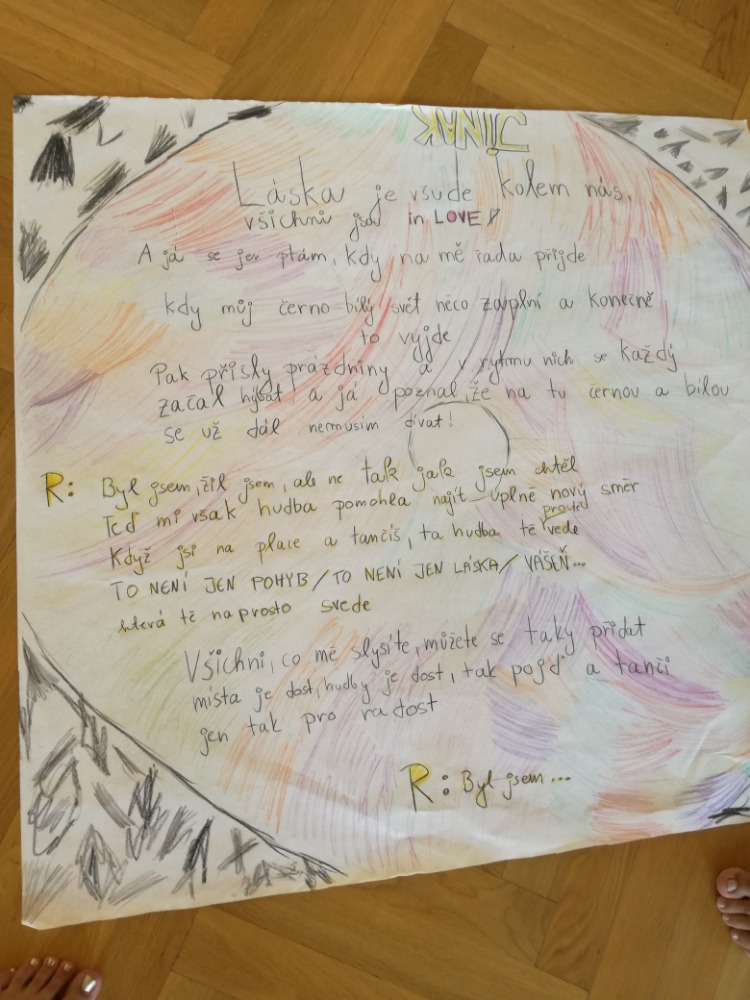 JINAK
Láska je všude kolem nás,
všichni jsou in LOVE!
A já se jen ptám, kdy na mě řada přijde
kdy můj černo-bílý svět něco zaplní a konečně
to vyjde
Pak přišly prázdniny a v rytmu nich se každý
začal hýbat a já poznal, že na tu černou a bílou
se už dál nemusím dívat!
R: Byl jsem, žil jsem, ale ne tak jak jsem chtěl
Teď mi však hudba pomohla najít úplně nový směr
Když jsi na place a tančíš, ta hudba tě prostě vede
TO NENÍ JEN POHYB/TO NENÍ JEN LÁSKA/ VÁŠEŇ...
která tě naprosto svede
Všichni, co mě slyšíte, můžete se taky přidat
místa je dost, hudby je dost, tak pojď a tanči
jen tak pro radost
R: Byl jsem...